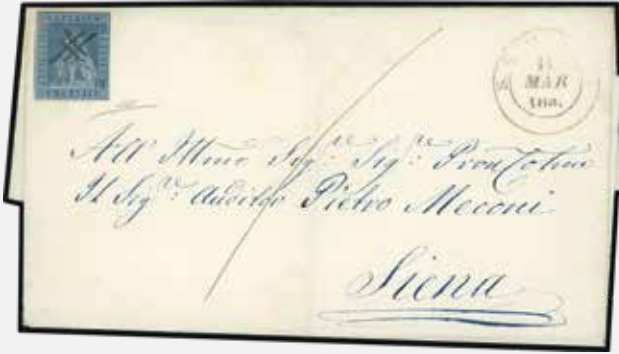 MAR
185
All' Illmo Sigre Sigre Pron Colmo
Il Sigre Auditor Pietro Meconi
Siena